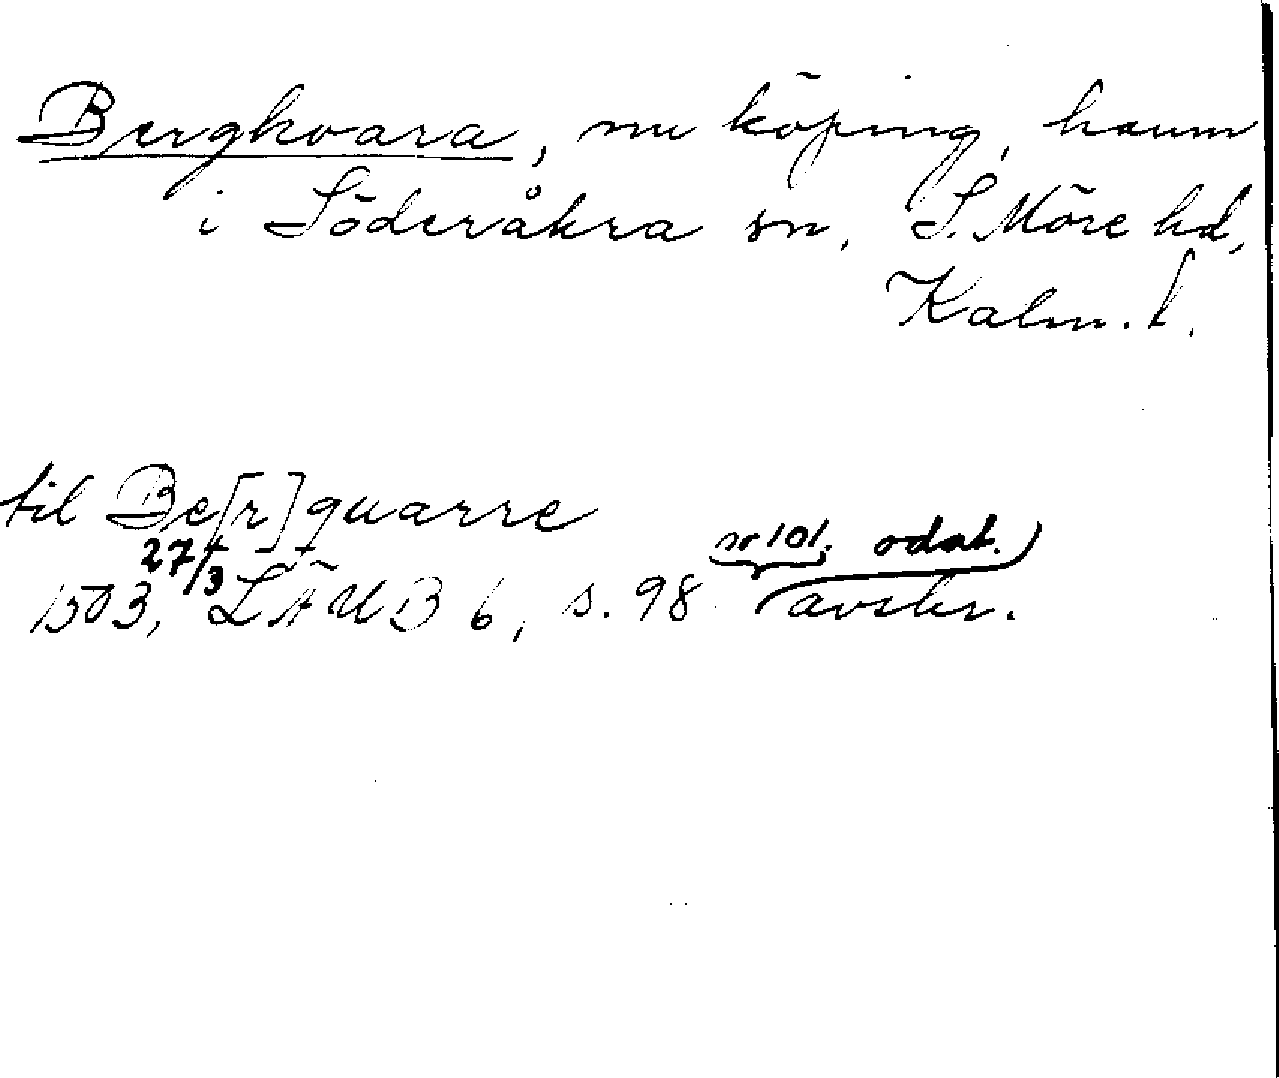 Bergkvara, nu köping, hamn
i Söderåkra sn, S. Möre hd,
Kalm. l.
til Be[r]quarre
1503, 27/3 LÄUB 6, s. 98 nr 101, odat. avskr.